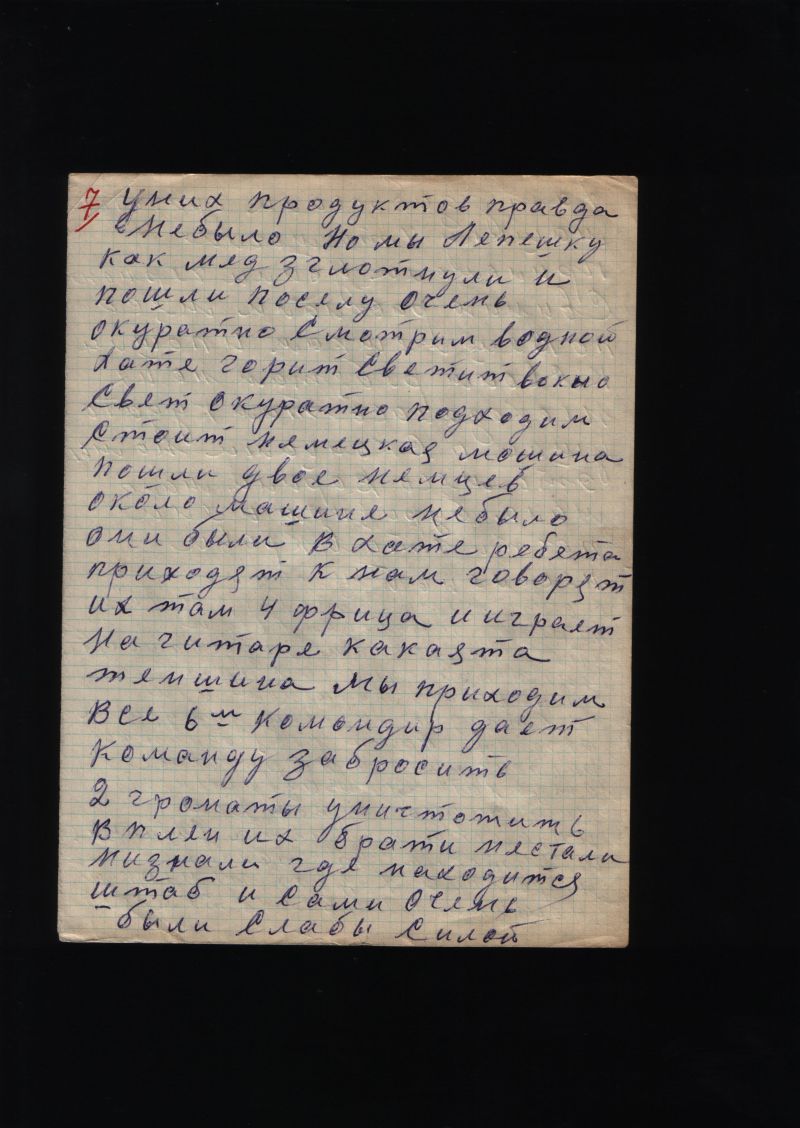 7 уних продуктов правда
небыло но мы Лепешку
как мед зглотнули и
пошли поселу очень
окуратно Смотрим водной
хате горит Светит вокно
Свет окуратно подходим
Стоит немецкая мошина
пошли двое немцев
около машине небыло
они были в хате ребета
приходят к нам говорят
их там 4 фрица и играет
на гитаре какаята
женшина Мы приходим
все 6м командир дает
команду забросить
2 гранаты уничтожить
в плен их брати нестали
низнали где находится
штаб и сами очень
были Слабы Силой